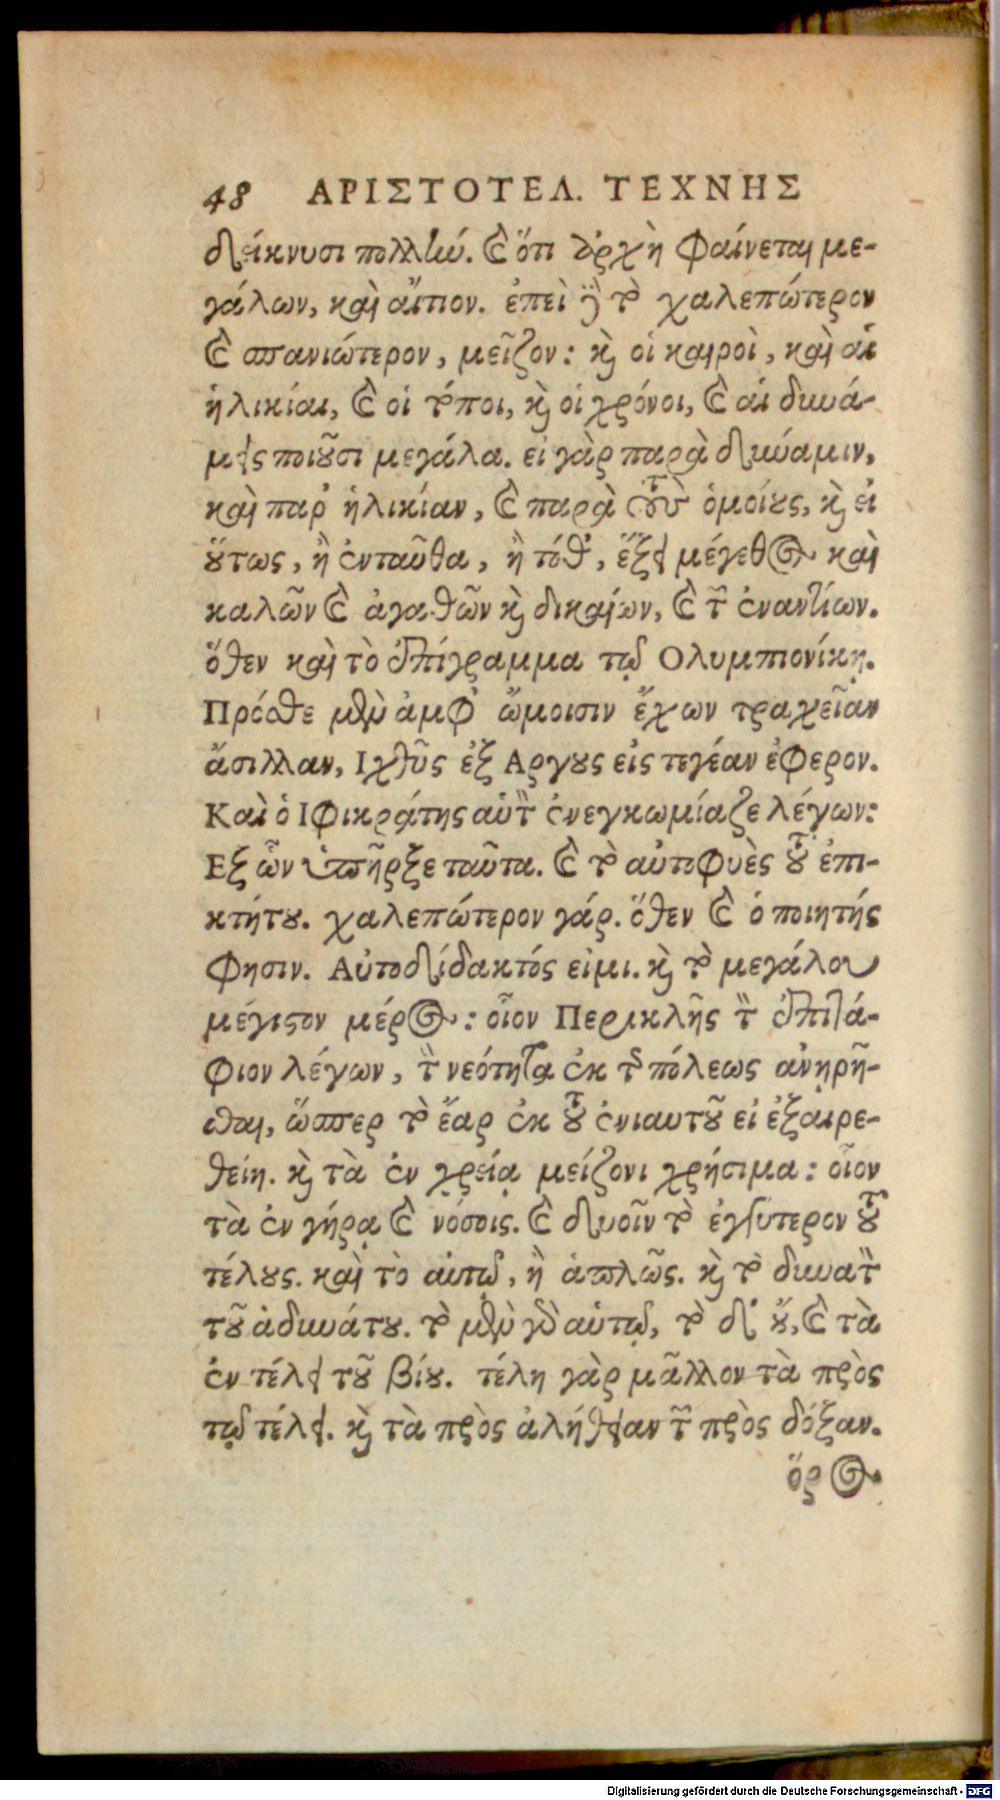 48 ΑΡΙΣΤΟΤΕΛ. ΤΕΧΝΗΣ
δείκνυσι πολλήν. καὶ ὅτι ἀρχὴ φαίνεται με-
γάλων, καὶ αἴτιον. ἐπεὶ δὲ τὸ χαλεπώτερον
καὶ σπανιώτερον, μεῖζον: καὶ οἱ καιροὶ, καὶ αἱ
ἡλικίαι, καὶ οἱ τόποι, καὶ οἱ χρόνοι, καὶ αἱ δυνά-
μεις ποιοῦσι μεγάλα. εἰ γὰρ παρὰ δύναμιν,
καὶ παρ' ἡλικίαν, καὶ παρὰ τοὺς ὁμοίους, καὶ εἰ
οὕτως, ἢ ἐνταῦθα, ἢ τόθ', ἕξει μέγεθος καὶ
καλῶν καὶ ἀγαθῶν καὶ δικαίων, καὶ τῶν ἐναντίων.
ὅθεν καὶ τὸ ἐπίγραμμα τῷ Ολυμπιονίκῃ.
Πρόσθε μὲν ἀμφ' ὤμοισιν ἔχων τραχεῖαν
ἄσιλλαν, Ιχθῦς ἐξ Αργους εἰς τεγέαν ἐφερον.
Καὶ ὁ Ιφικράτης αὑτὸν ἐνεγκωμίαζε λέγων:
Εξ ὧν ὑπῆρξε ταῦτα. καὶ τὸ αὐτοφυὲς τοῦ ἐπι-
κτήτου. χαλεπώτερον γάρ. ὅθεν καὶ ὁ ποιητής
φησιν. Αὐτοδίδακτός εἰμι. καὶ τὸ μεγάλου
μέγιστον μέρος: οἷον Περικλῆς τὸν ἐπιτά-
φιον λέγων, τὴν νεότητα ἐκ τῆς πόλεως ἀνῃρῆ-
σθαι, ὥσπερ τὸ ἔαρ ἐκ τοῦ ἐνιαυτοῦ εἰ ἐξαιρε-
θείη. καὶ τὰ ἐν χρείᾳ μείζονι χρήσιμα: οἷον
τὰ ἐν γήρᾳ καὶ νόσοις. καὶ δυοῖν τὸ ἐγγύτερον τοῦ
τέλους. καὶ τὸ αὑτῷ, ἢ ἁπλῶς. καὶ τὸ δυνατὸν
τοῦ ἀδυνάτου. τὸ μὲν γὰρ αὑτῷ, τὸ δ' οὔ, καὶ τὰ
ἐν τέλει τοῦ βίου. τέλη γὰρ μᾶλλον τὰ πρὸς
τῷ τέλει. καὶ τὰ πρὸς ἀλήθειαν τῶν πρὸς δόξαν.
ὅρος
Digitalisierung gefördert durch die Deutsche Forschungsgemeinschaft - DFG